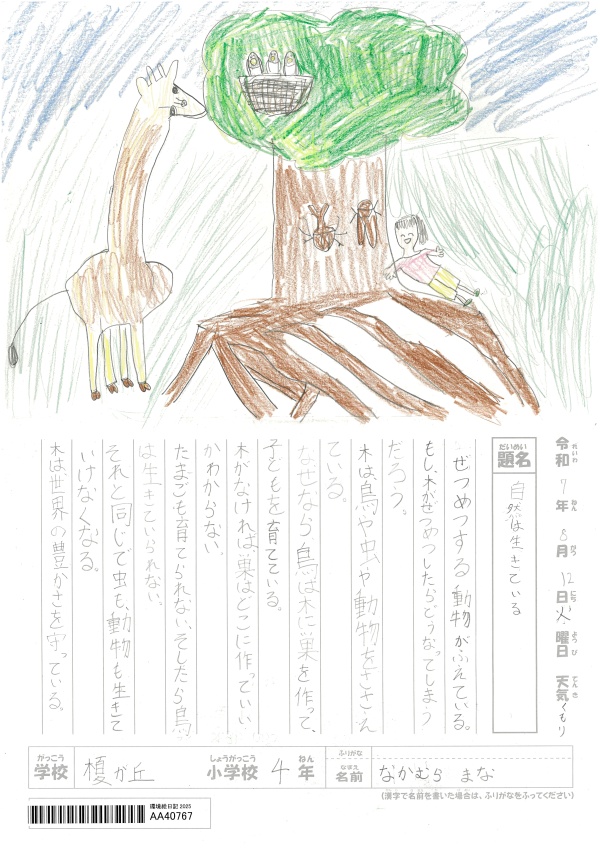 令和 れいわ 7 年 ねん 8 月 がつ 12 日 にち 火 曜日 ようび 天気 てんき くもり
題名 だいめい 自然は生きている
ぜつめつする動物がふえている。
もし、木がぜつめつしたらどうなってしまう
だろう。
木は鳥や虫や動物をささえ
ている。
なぜなら鳥は木に巣を作って、
子どもを育てている。
木がなければ巣はどこに作っていい
かわからない。
たまごも育てられない、そしたら鳥
は生きていられない。
それと同じで虫も、動物も生きて
いけなくなる。
木は、世界の豊かさを守っている。
学校 がっこう 榎が丘 小学校 しょうがっこう 4 年 ねん ふりがな 名前 なまえ なかむら まな
(漢字で名前を書いた場合は、ふりがなをふってください)
環境絵日記 2025
AA40767